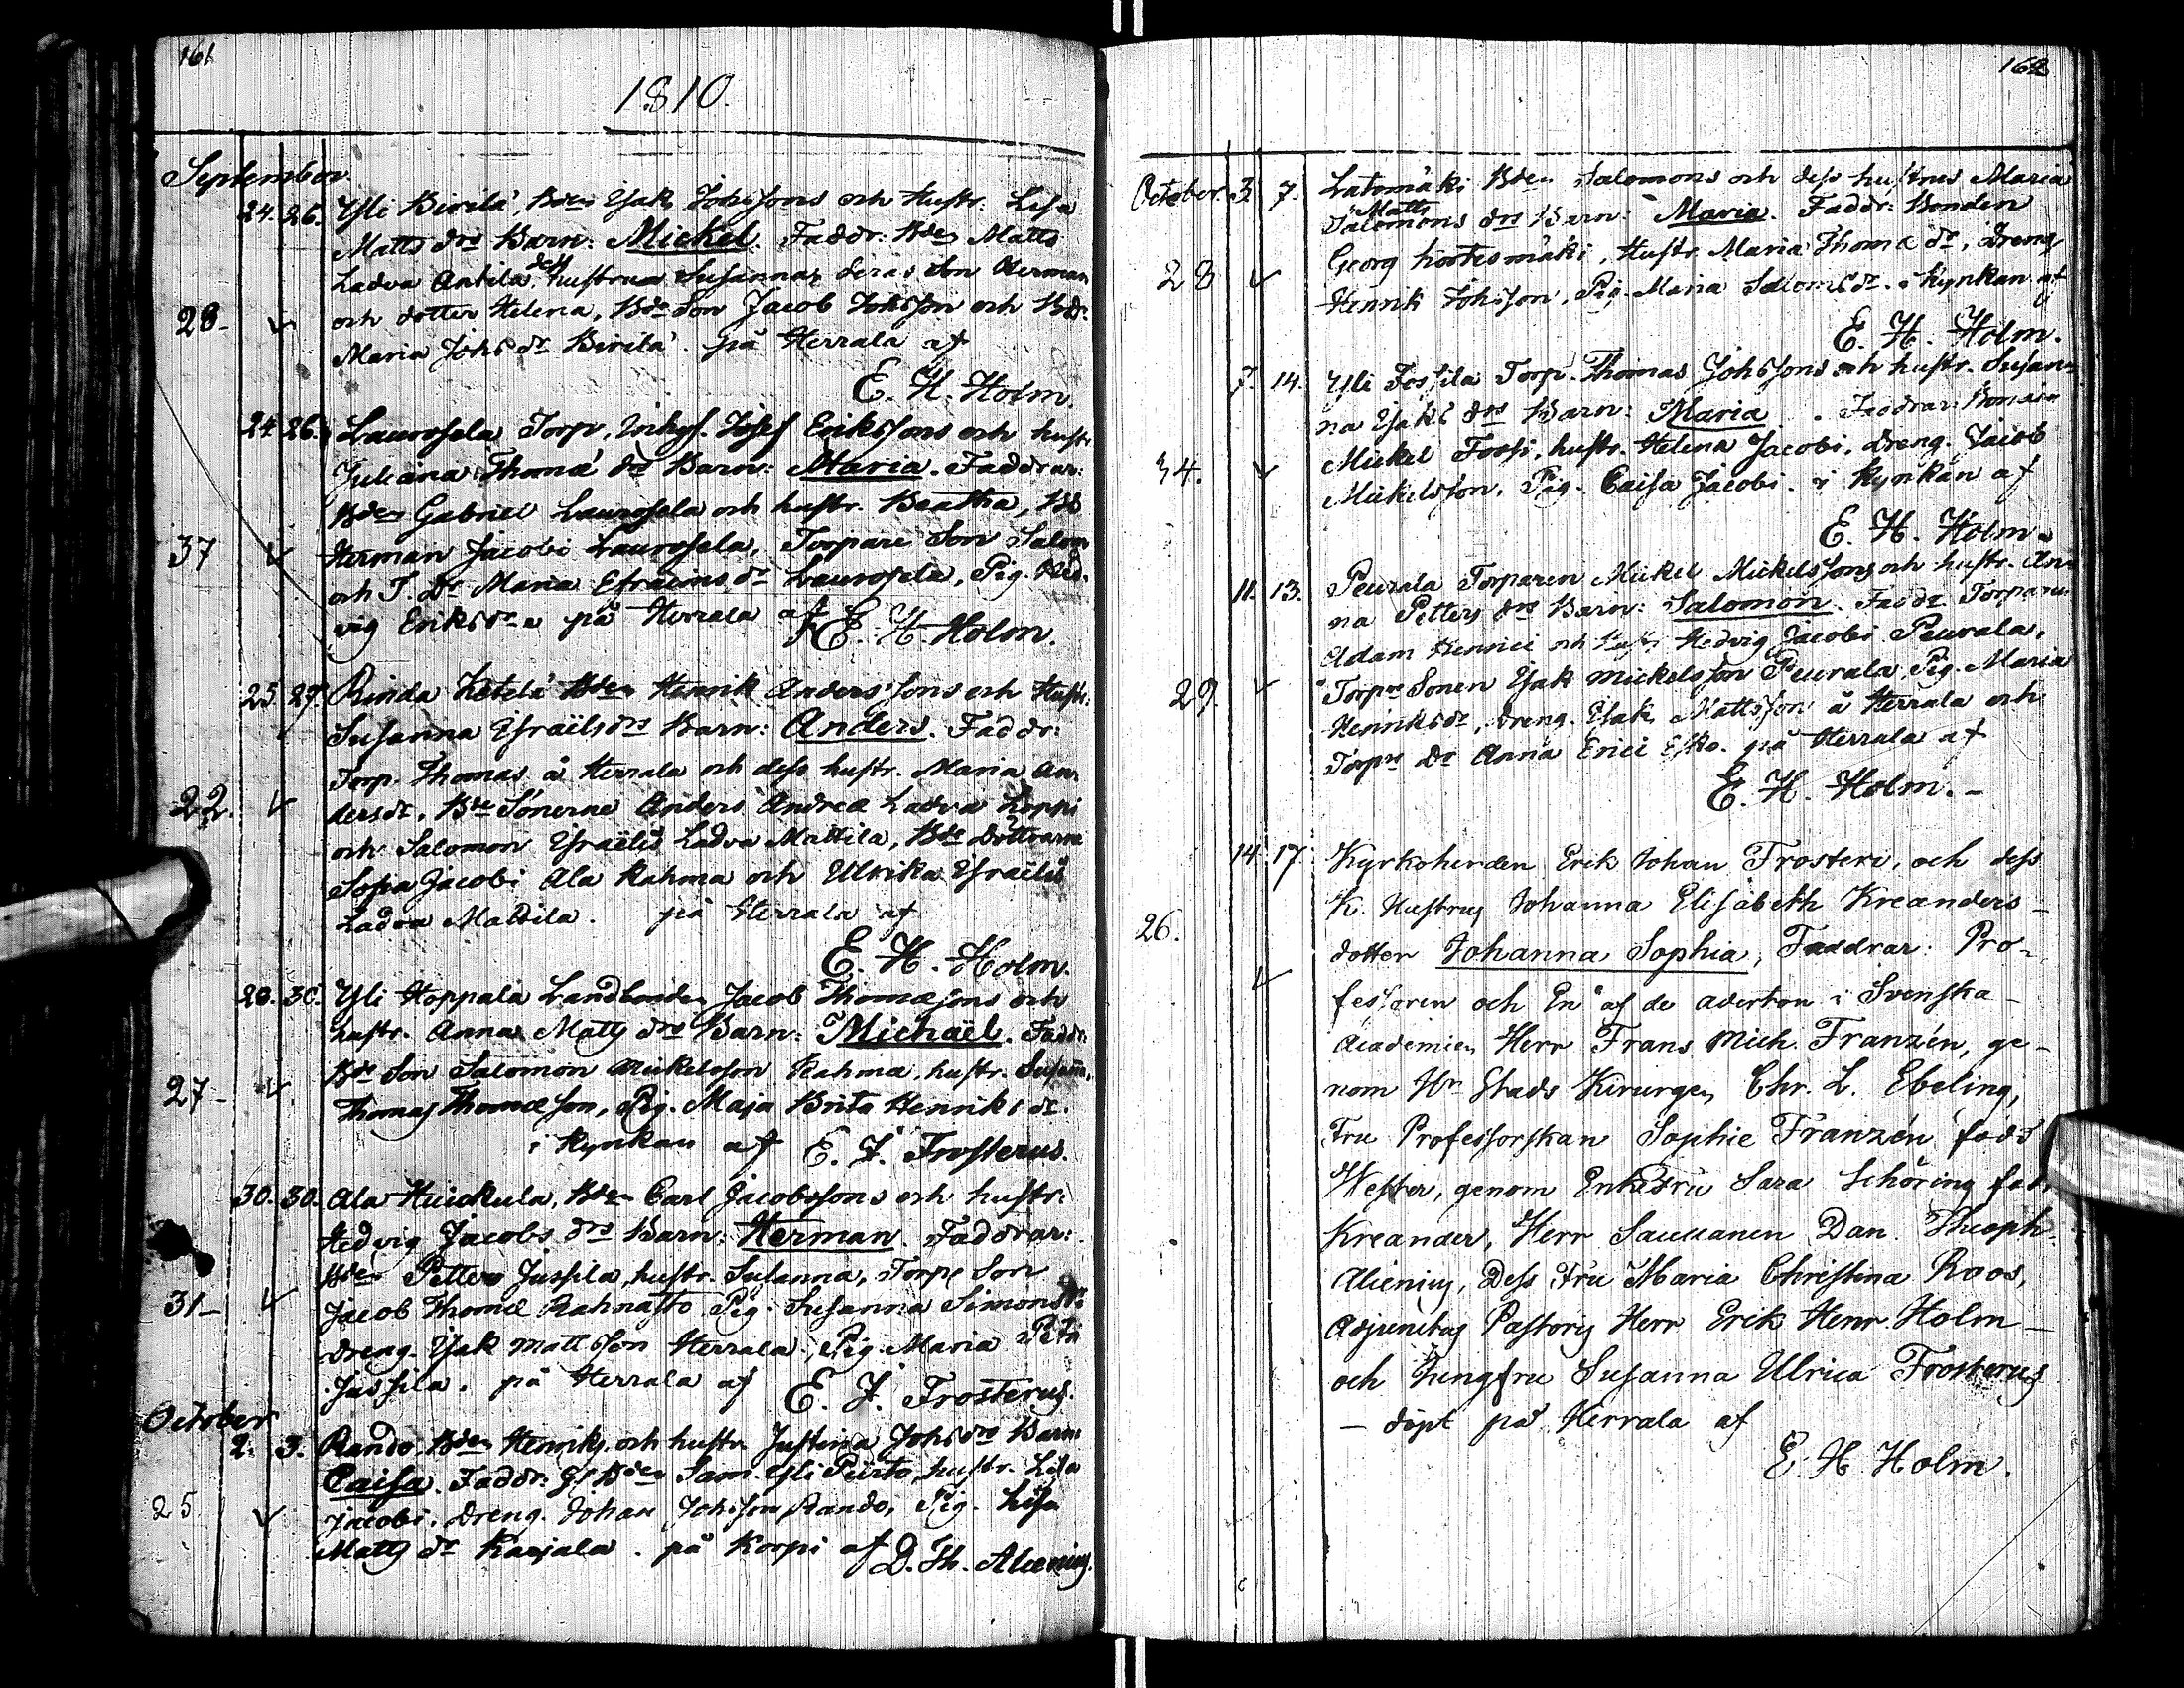 161
1810.
September
24. 26. Yli Birilä, Bden Isak Johssons och Hustr. Lisa
Matts drs Barn: Mickel. Faddr: Bden Matts
Ladva Antila, dess hustru Susanna, deras Son Herman
28- och dotter Helena, Bde Son Jacob Johsson och Bde
Maria Johs dr Birilä. på Herrala af
E. H. Holm.
24. 26. Laurosela Torp, Josef Erikssons och hustr.
Juliana Thomæ drs Barn: Maria. Faddrar:
Bden Gabriel Laurosela och hustr. Beatha, Bd
37 Herman Jacobi Laurosela, Torpare Son Salom
och T. Dr Maria Efraims dr Laurosela, Pig. Hed-
vig Eriks dr på Herrala af E. H. Holm.
25. 27. Rinda Ketelä Bden Henrik Anderssons och Hustr.
Susanna Israëls drs Barn: Anders. Faddr:
Torp. Thomas å Herrala och dess hustr. Maria An-
22. dersdr. Bde Sönerne Anders Andreæ Ladva Loppi
och Salomon Israëlis Ladva Mattila, Bde Döttrarne
Sofia Jacobi Ala Rahma och Ulrika Israëlis
Ladva Mattila. på Herrala af
E. H. Holm.
28. 30. Yli Hoppala Landbonden Jacob Thomæsons och
hustr. Anna Matts drs Barn: Michaël. Faddr.
Bde Son Salomon Mickelsson Rahma, hustr. Susana,
27- Thomas Thomæson, Pig. Maja Brita Henriks dr.
i Kynkan af E. J. Frosterus.
30. 30. Ala Huickula, Bden Carl Jacobssons och hustr:
Hedvig Jacobs drs Barn: Herman. Faddrar:
Bden Petter Jussila, hustr. Susanna, Torps Son
31- Jacob Thomæ Rahnasto Pig. Susanna Simons dr
dreng. Isak Mattsson Herrala, Pig. Maria Petri
Jussila. på Herrala af E. J. Frosterus.
October
2. 3. Rando Bden Henriks och hustr. Justina Johs drs Barn:
Caisa. Faddr: Bden Sam. Yli Piirto, hustr. Lisa
25 Jacobi. dreng. Johan Johsson Rando, Pig. Lisa
Matts dr Karjala. på Korpi af D. Th. Alcenius.
162
October. 3. 7. Latomäki Bden Salomons och dess hustrus Maria
Matts
Salomons drs Barn: Maria. Faddr: Bonden
28 Georg Kortesmäki, Hustr. Maria Thomæ dr, Dreng
Henrik Johsson, Pig. Maria Saloms dr. i Kynkan af
E. H. Holm.
7. 14. Yli Fossila Torp. Thomas Johssons och hustr. Susan-
na Isaks drs Barn: Maria. Faddrar: Bonden
34. Mickel Fossi, hustr. Helena Jacobi, dreng. Jacob
Mickelsson, Pig. Caisa Jacobi. i Kynkan af
E. H. Holm.
11. 13. Peurala Torparen Mickel Mickelssons och hustr. An-
na Petters drs Barn: Salomon. Faddr Torparen
Adam Henrici och hustr Hedvig Jacobi Peurala,
29. Torprs Sonen Isak Mickelsson Peurala, Pig. Maria
Henriks dr, dreng. Isak Mattsson å Herrala och
Torprs Dr Anna Erici Esko. på Herrala af
E. H. Holm.-
14. 17. Kyrkoherden Erik Johan Frosteri, och dess
26. K. Hustrus Johanna Elisabeth Kreanders-
dotter Johanna Sophia, Faddrar: Pro-
fessoren och En af de aderton i Svenska
Academien Herr Frans Mich. Franzén, ge-
nom Hr Stads Kirurgen Chr. L. Ebeling,
Fru Professorskan Sophie Franzén född
Wester, genom Enkefru Sara Schöring född
Kreander, Herr Dan. Theoph.
Alcenius, Dess Fru Maria Christina Roos,
Adjunctus Pastoris Herr Erik Henr. Holm-
och Jungfru Susanna Ulrica Frosterus
- döpt på Herrala af
E. H. Holm.